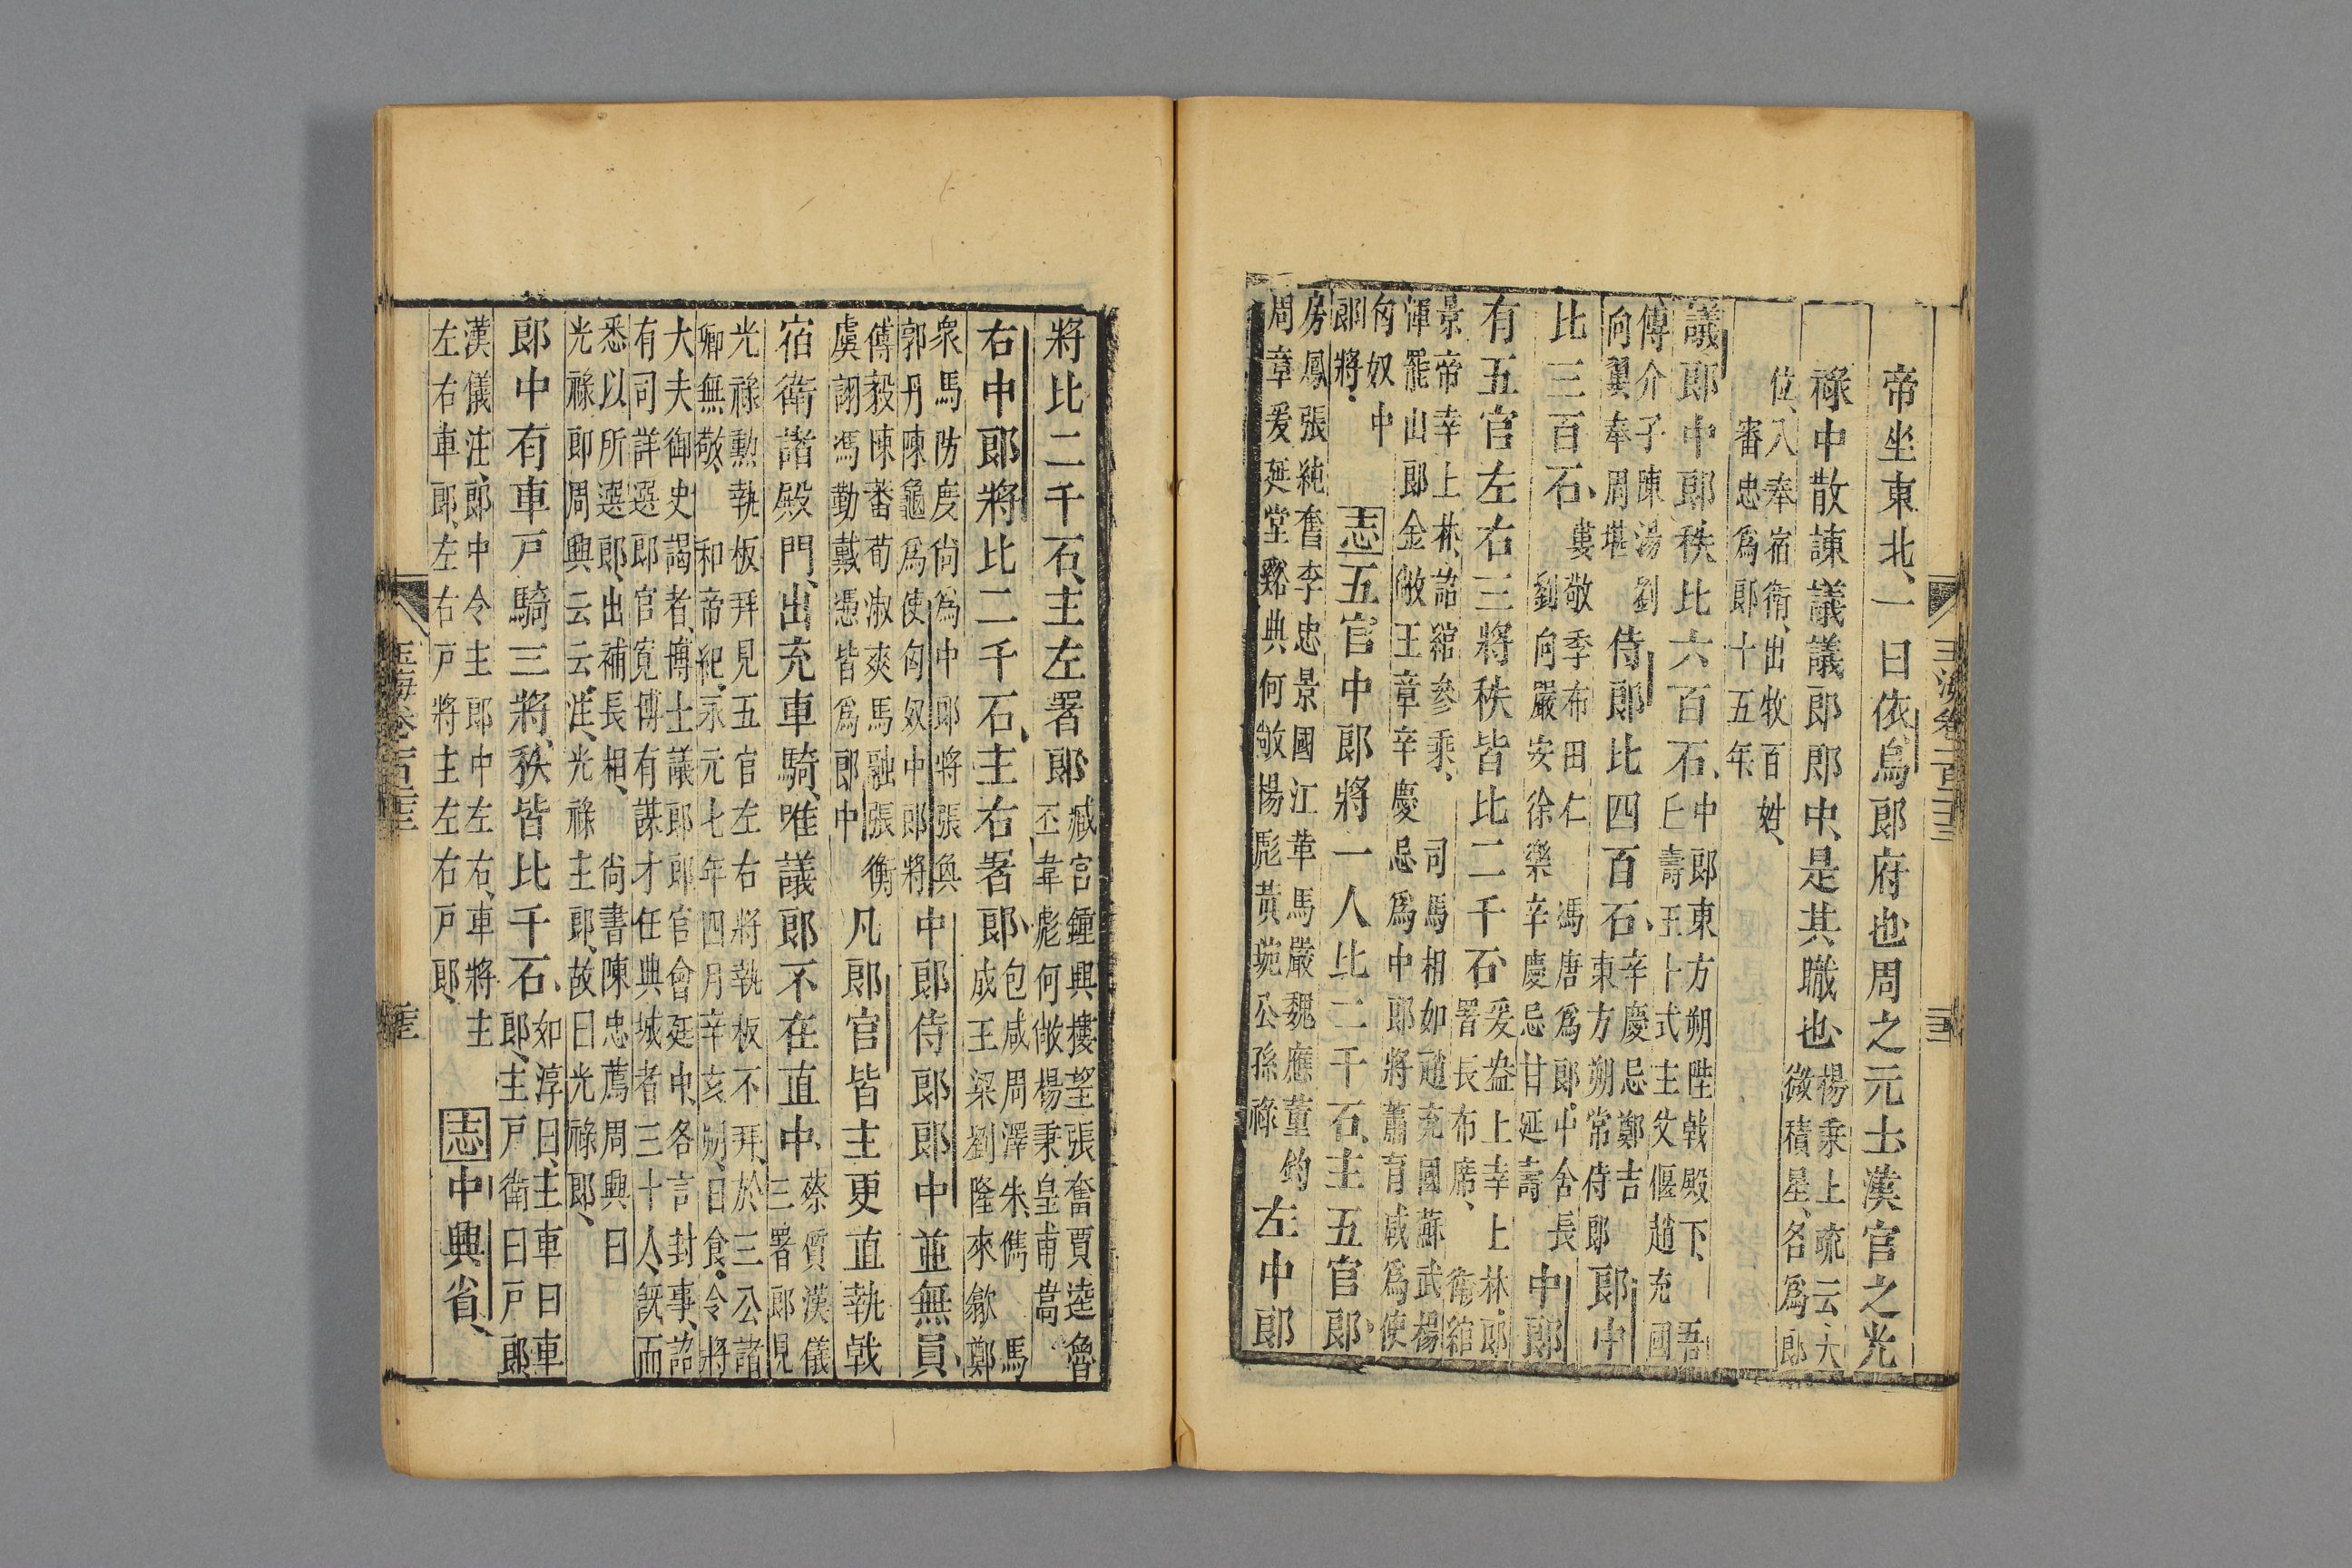 帝坐東北、一曰依烏郎府也周之元士漢官之光
祿中散諫議議郎郎中、是其職也楊秉上疏云、太
微積星、各爲郎
位、入奉宿衛、出牧百姓、
審忠爲郎十五年、
議郎中郎秩比六百石、中郎東方朔陛戟殿下、吾
丘壽王十式主父偃趙充國
傅介子陳湯劉
向翼奉周堪侍郎比四百石、辛慶忌鄭吉
東方朔常侍郎郎中
比三百石、婁敬季布田仁馮唐爲郎中舍長
劉向嚴安徐樂辛慶忌甘延壽中郎
有五官左右三將秩皆比二千石、爰盎上幸上林、郎
署長布席、衛綰
景帝幸上林、詔綰參乘、司馬相如趙充國蘇武楊
惲罷山郎金敞王章辛慶忌爲中郎將蕭育咸爲使
匈奴中
郎將、志五官中郎將一人比二千石、主五官郎、
房鳳張純奮李忠景國江革馬嚴魏應董鈞
周章爰延堂谿典何敞楊彪黃琬公孫祿左中郎
將比二千石、主左署郎臧宮鍾興樓望張奮賈逵魯
丕韋彪何敞楊秉皇甫嵩
右中郎將比二千石、主右署郎、包咸周澤朱儁馬
成王梁劉隆來歙鄭
衆馬防度尚爲中郎將張奐
郭丹陳龜爲使匈奴中郎將中郎侍郎郎中並無員、
傅毅陳蕃荀淑爽馬融張衡
虞詡馮勤戴憑皆爲郎中凡郎官皆主更直執戟
宿衛諸殿門、出充車騎、唯議郎不在直中、蔡質漢儀
三署郎見
光祿勳執板拜見五官左右將執板不拜、於三公諸
卿無敬、和帝紀、永元七年四月辛亥朔、日食、令將
大夫御史謁者、博士議郎郎官會廷中、各言封事、詔
有司詳選郎官寬博有謀才任典城者三十人、既而
悉以所選郎、出補長相、尚書陳忠薦周興曰
光祿郎周興云云、注、光祿主郎、故曰光祿郎、
郎中有車戸騎三將、秩皆比千石、如淳曰、主車曰車
郎、主戸衛曰戸郎
漢儀注、郎中令主郎中左右、車將主
左右車郎、左右戸將主左右戸郎、志中興省、